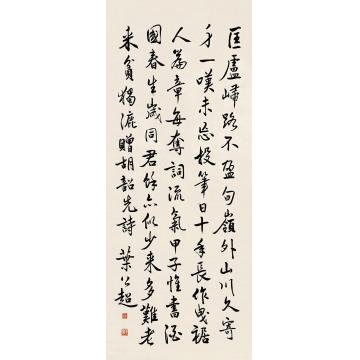 匡廬歸路不盈旬嶺外山川久寄
身一嘆未忘投筆日十年長作曳裾
人篇章每奪詞流氣甲子惟書酒
國春生歲同君餘亦似少來多難老
來貧獨漉贈胡韶先詩 葉公超